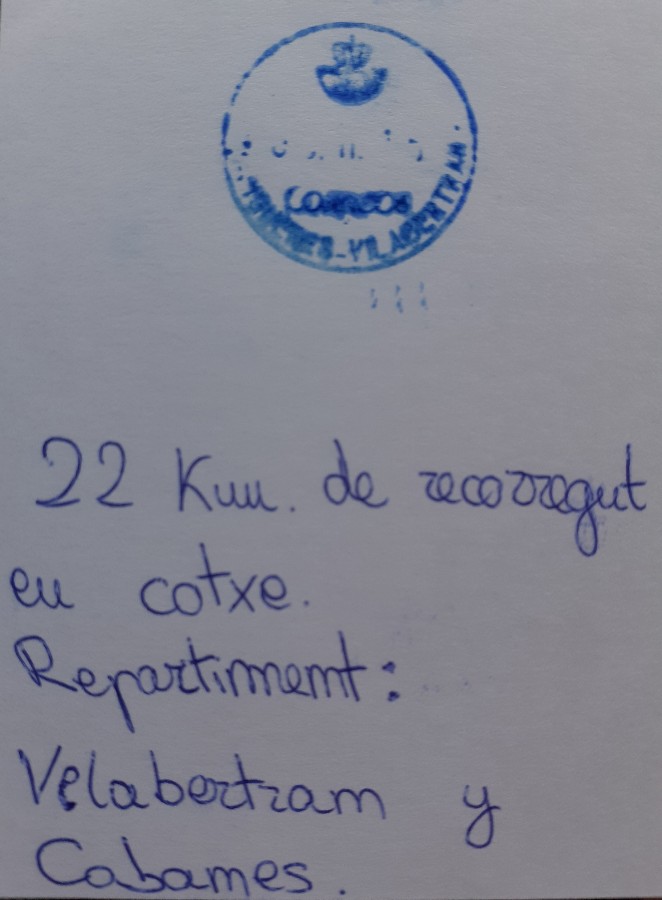 CORREOS
VILABERTRAN
22 Km. de recorregut
en cotxe.
Repartiment:
Vilabertran y
Cabanes.